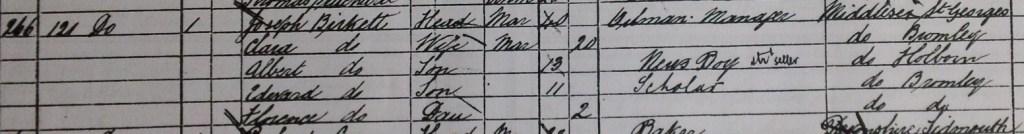 266 121 Do 1 Joseph Birkett Head Mar 40 Oilman Manager Middlesex St Georges
Clara do Wife Mar 20 do Bromley
Albert do Son 13 News Boy do Holborn
Edward do Son 11 Scholar do Bromley
Florence do Dau 2 do do
Baker Devonshire Sidmouth